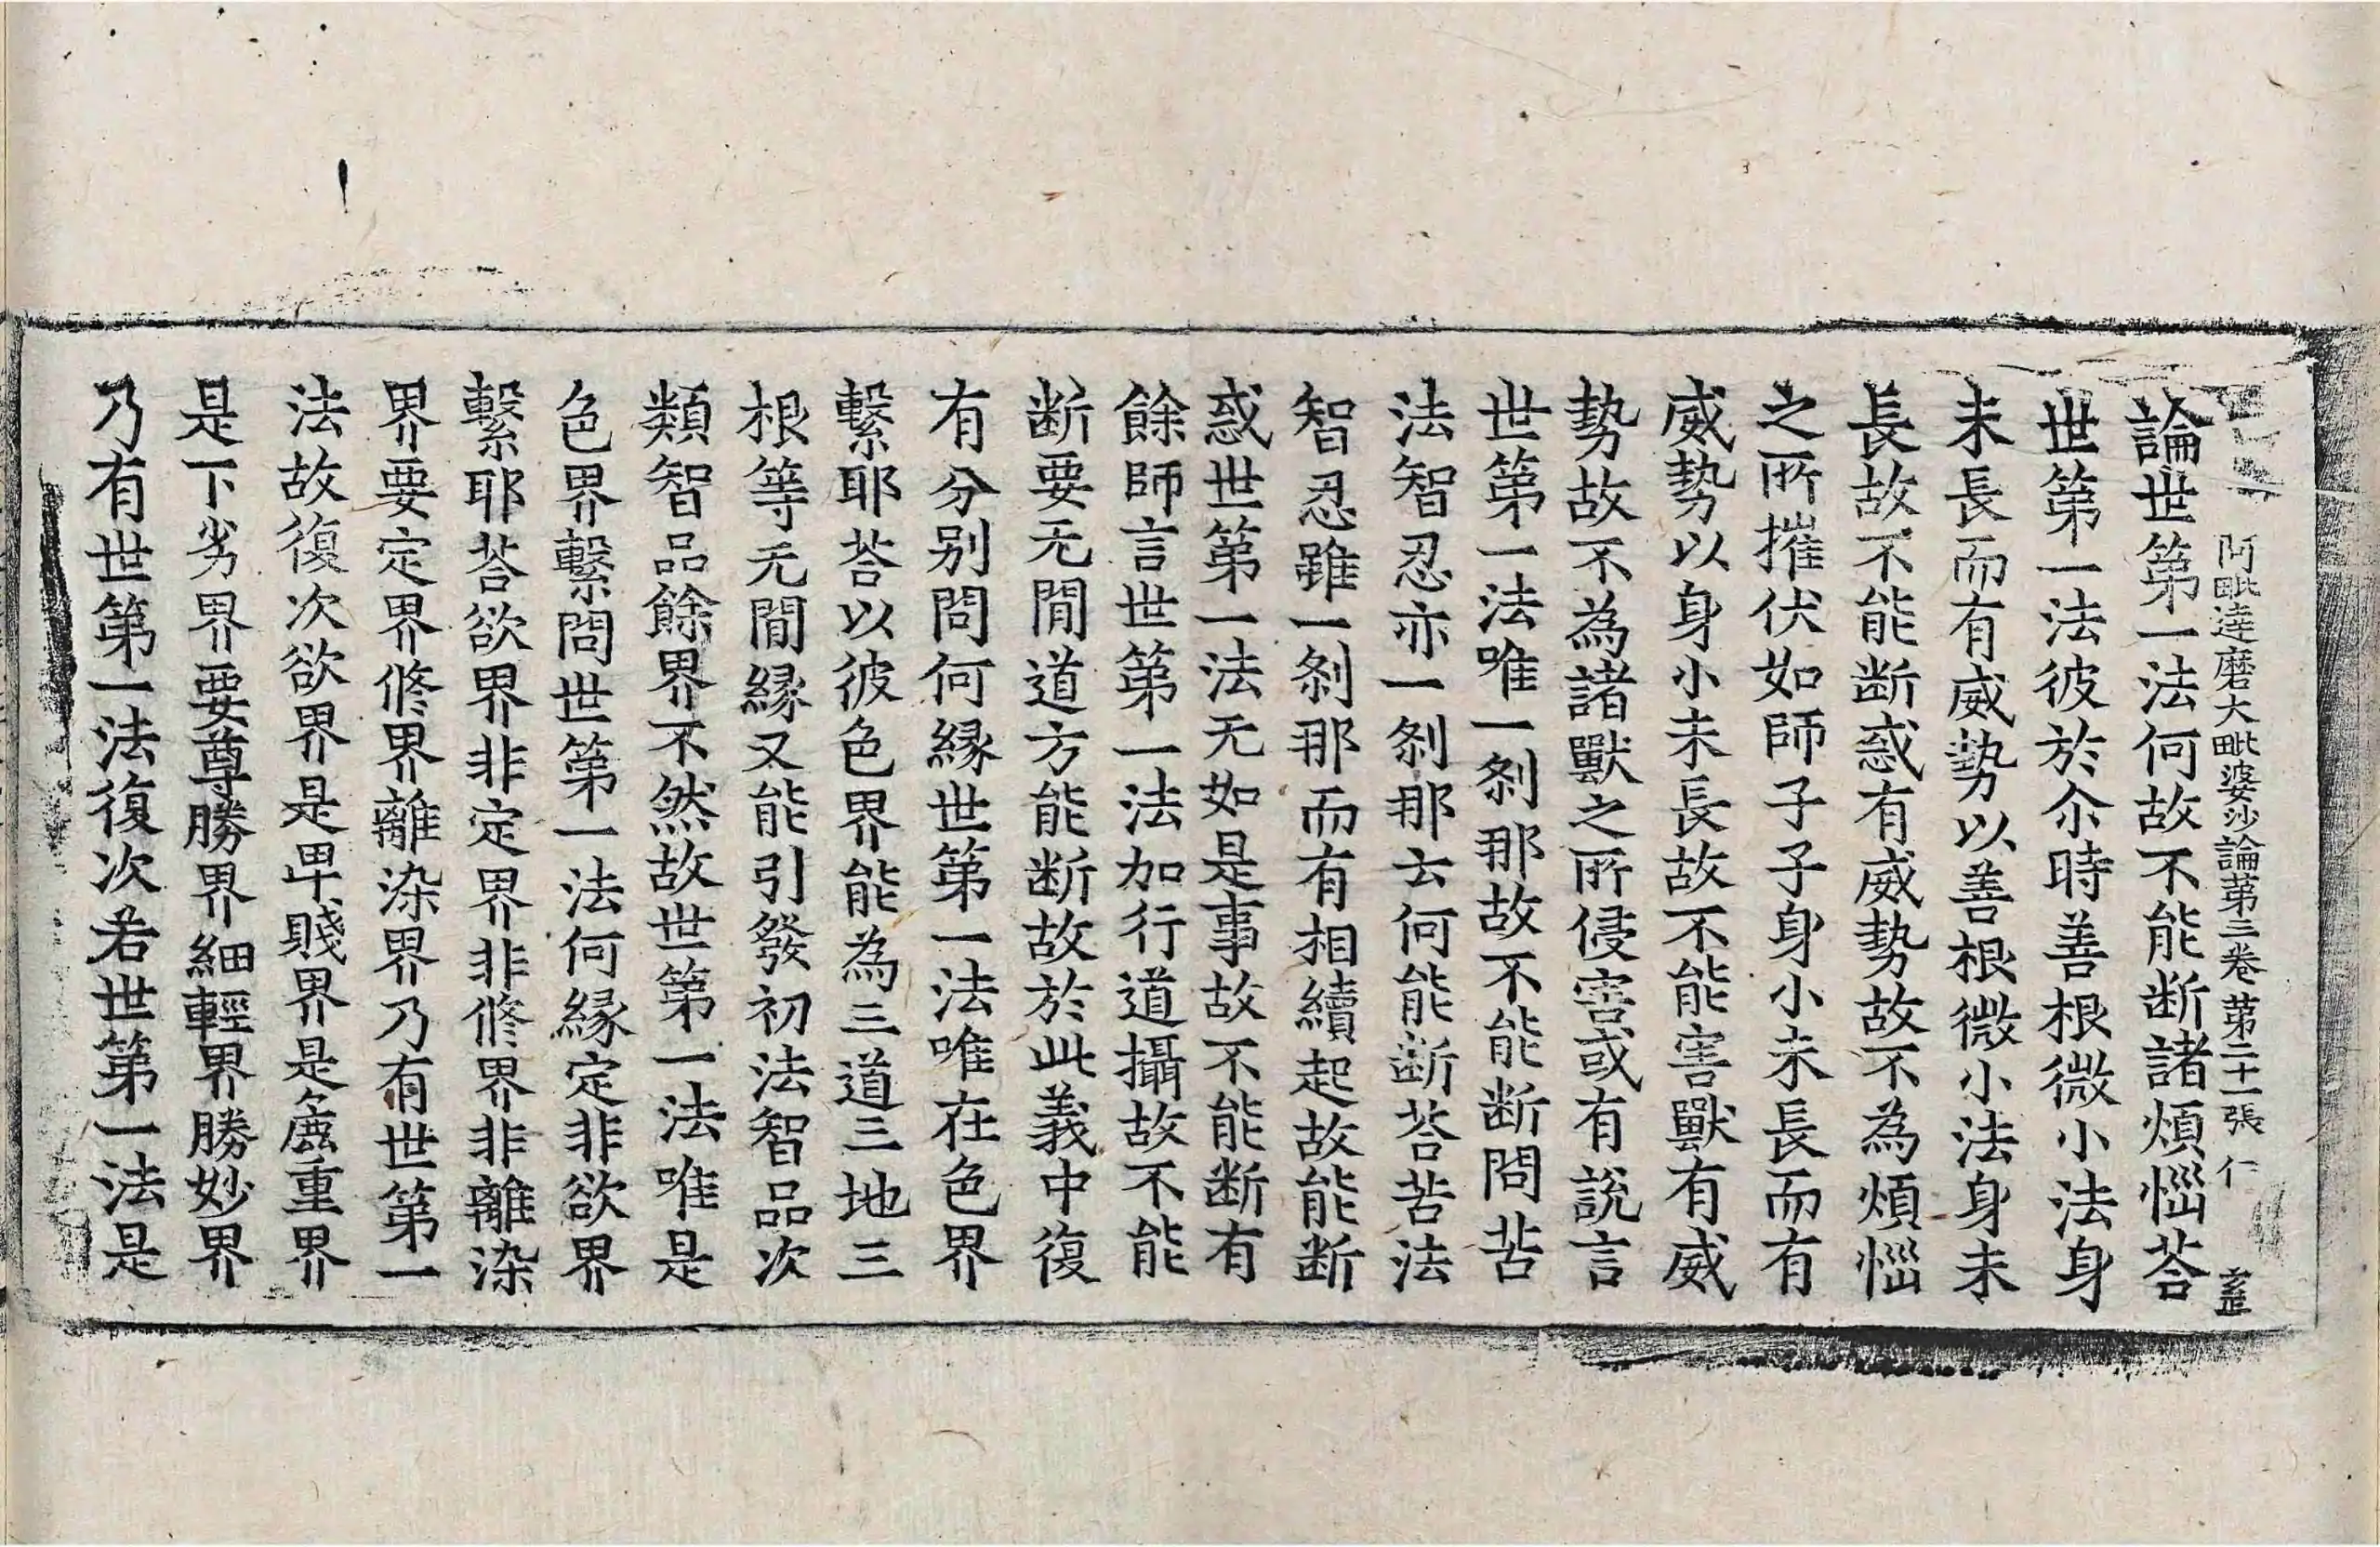 阿毗達磨大毗婆沙論第三卷 第二十一張 仁
論世第一法何故不能断諸煩惱荅
世第一法彼於尒時善根微小法身
未長而有威勢以善根微小法身未
長故不能断惑有威勢故不為煩惱
之所摧伏如師子子身小未長而有
威勢以身小未長故不能害獸有威
勢故不為諸獸之所侵害或有說言
世第一法唯一刹那故不能断問苦
法智忍亦一刹那云何能断荅苦法
智忍雖一刹那而有相續起故能断
惑世第一法无如是事故不能断有
餘師言世第一法加行道攝故不能
断要无閒道方能断故於此義中復
有分別問何縁世第一法唯在色界
繫耶荅以彼色界能為三道三地三
根等无閒縁又能引發初法智品次
類智品餘界不然故世第一法唯是
色界繫問世第一法何縁定非欲界
繫耶荅欲界非定界非修界非離染
界要定界修界離染界乃有世第一
法故復次欲界是卑賤界是麁重界
是下劣界要尊勝界細輕界勝妙界
乃有世第一法復次若世第一法是